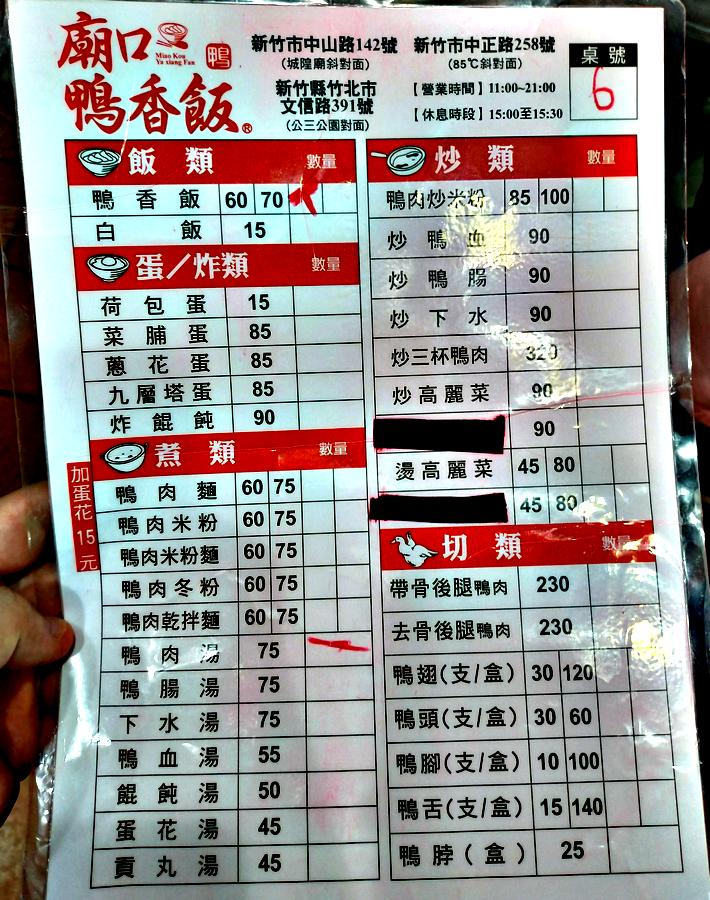 廟口
鴨香飯®
Miao Kou
Ya xiang Fan
鴨
新竹市中山路142號
(城隍廟斜對面)
新竹縣竹北市
文信路391號
(公三公園對面)
新竹市中正路258號
(85℃斜對面)
【營業時間】11:00~21:00
【休息時段】15:00至15:30
桌號
6
飯類 數量
鴨香飯 60 70
白飯 15
蛋/炸類 數量
荷包蛋 15
菜脯蛋 85
蔥花蛋 85
九層塔蛋 85
炸餛飩 90
煮類 數量
加蛋花15元
鴨肉麵 60 75
鴨肉米粉 60 75
鴨肉米粉麵 60 75
鴨肉冬粉 60 75
鴨肉乾拌麵 60 75
鴨肉湯 75
鴨腸湯 75
下水湯 75
鴨血湯 55
餛飩湯 50
蛋花湯 45
貢丸湯 45
炒類 數量
鴨肉炒米粉 85 100
炒鴨血 90
炒鴨腸 90
炒下水 90
炒三杯鴨肉 320
炒高麗菜 90
90
燙高麗菜 45 80
45 80
切類 數量
帶骨後腿鴨肉 230
去骨後腿鴨肉 230
鴨翅(支/盒) 30 120
鴨頭(支/盒) 30 60
鴨腳(支/盒) 10 100
鴨舌(支/盒) 15 140
鴨脖(盒) 25